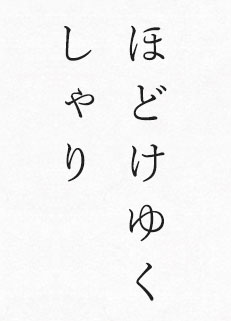 ほどけゆく
しゃり